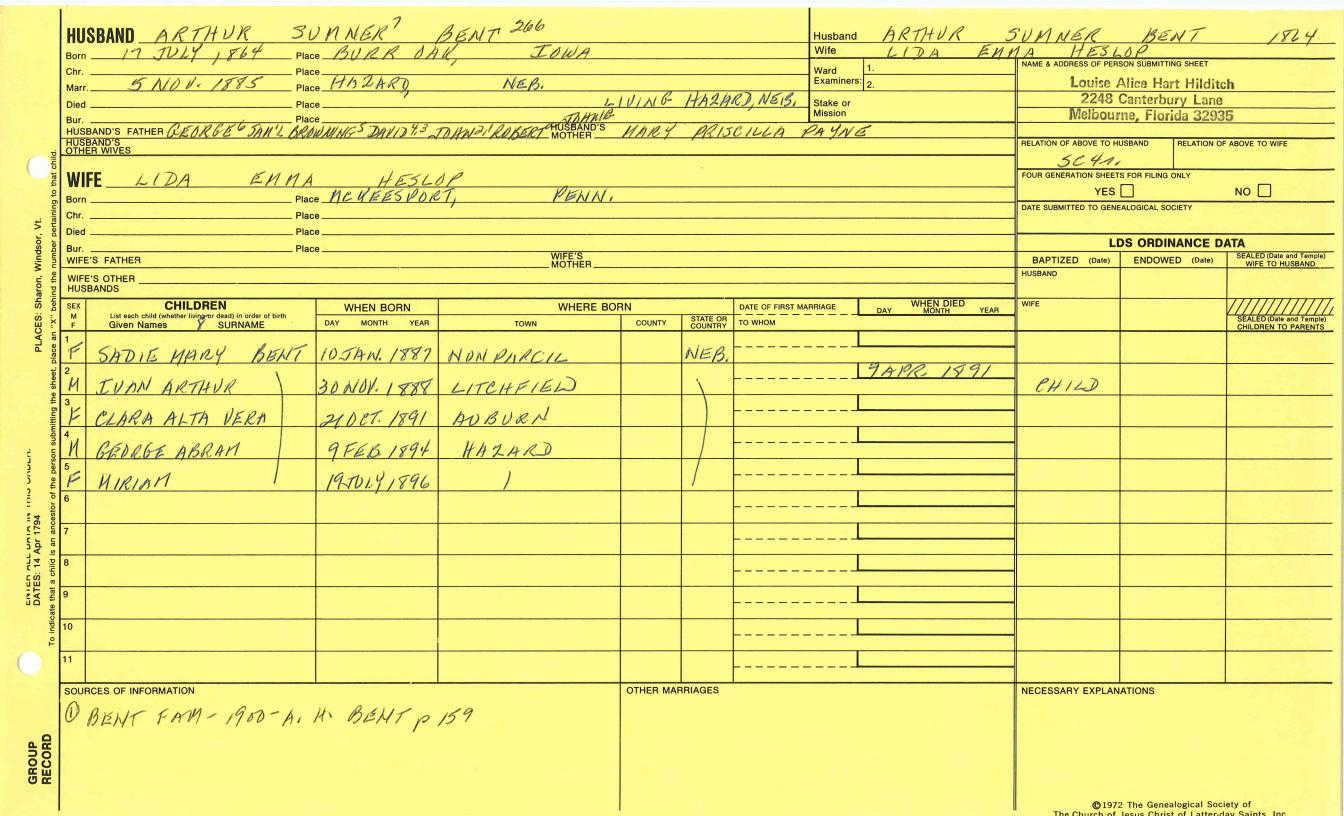 HUSBAND ARTHUR SUMNER⁷ BENT 266
Born 17 JULY, 1864 Place BURR OAK, IOWA
Chr. Place
Marr. 5 NOV. 1885 Place HAZARD, NEB.
Died Place LIVING HAZARD, NEB.
Bur. Place
HUSBAND'S FATHER GEORGE⁶ SAM'L BROWNING⁵ DAVID⁴,³ JOHN²,¹ ROBERT⁰ JOHN HUSBAND'S MOTHER MARY PRISCILLA PAYNE
HUSBAND'S OTHER WIVES
WIFE LIDA EMMA HESLOP
Born Place MCKEESPORT, PENN.
Chr. Place
Died Place
Bur. Place
WIFE'S FATHER WIFE'S MOTHER
WIFE'S OTHER HUSBANDS
Husband ARTHUR SUMNER BENT 1864
Wife LIDA EMMA HESLOP
Ward Examiners: 1.
2.
Stake or Mission
NAME & ADDRESS OF PERSON SUBMITTING SHEET
Louise Alice Hart Hilditch
2248 Canterbury Lane
Melbourne, Florida 32935
RELATION OF ABOVE TO HUSBAND RELATION OF ABOVE TO WIFE
5C4r.
FOUR GENERATION SHEETS FOR FILING ONLY
YES NO
DATE SUBMITTED TO GENEALOGICAL SOCIETY
LDS ORDINANCE DATA
BAPTIZED (Date) ENDOWED (Date) SEALED (Date and Temple) WIFE TO HUSBAND
HUSBAND
WIFE
SEALED (Date and Temple) CHILDREN TO PARENTS
SEX M F CHILDREN WHEN BORN WHERE BORN DATE OF FIRST MARRIAGE WHEN DIED
List each child (whether living or dead) in order of birth
Given Names SURNAME DAY MONTH YEAR TOWN COUNTY STATE OR COUNTRY TO WHOM DAY MONTH YEAR
1 F SADIE MARY BENT 10 JAN. 1887 NONPARCIL NEB.
2 M IVAN ARTHUR 30 NOV. 1888 LITCHFIELD 9 APR 1891 CHILD
3 F CLARA ALTA VERA 21 OCT. 1891 AUBURN
4 M GEORGE ABRAM 9 FEB. 1894 HAZARD
5 F MIRIAM 19 JULY 1896
6
7
8
9
10
11
SOURCES OF INFORMATION OTHER MARRIAGES NECESSARY EXPLANATIONS
① BENT FAM- 1900- A. H. BENT p 159
©1972 The Genealogical Society of
The Church of Jesus Christ of Latter-day Saints, Inc.
PLACES: Sharon, Windsor, Vt.
DATES: 14 Apr 1794
To indicate that a child is an ancestor of the person submitting the sheet, place an "X" behind the number pertaining to that child.
GROUP RECORD